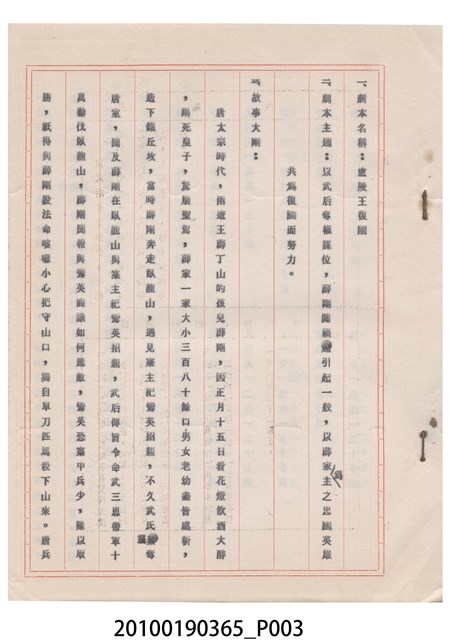 一、劇本名稱：盧陵王復國
二、劇本主題：以武后奪權謀位，薛剛闖禍引起一般，以薛家為主之忠國英雄
共為復國而努力。
三、故事大剛：
唐太宗時代，兩遼王薛丁山的孩兒薛剛，因正月十五日看花燈飲酒大醉
，踢死皇子，驚崩聖駕，薛家一家大小三百八十餘口，男女老幼盡皆處斬，
造下鐵丘坟，當時薛剛奔走臥龍山，遇見寨主祀鸞英招親，不久武氏篡奪
唐室，聞及薛剛在臥龍山與寨主祀鸞英招親，武后傳旨令命武三思帶軍十
萬動伐臥龍山，薛剛聞報與鸞英商議如何應敵，鸞英恐寨中兵少，難以取
勝，祇得與薛剛設法命嘍囉小心把守山口，獨自單刀匹馬殺下山來。唐兵
20100190365_P003